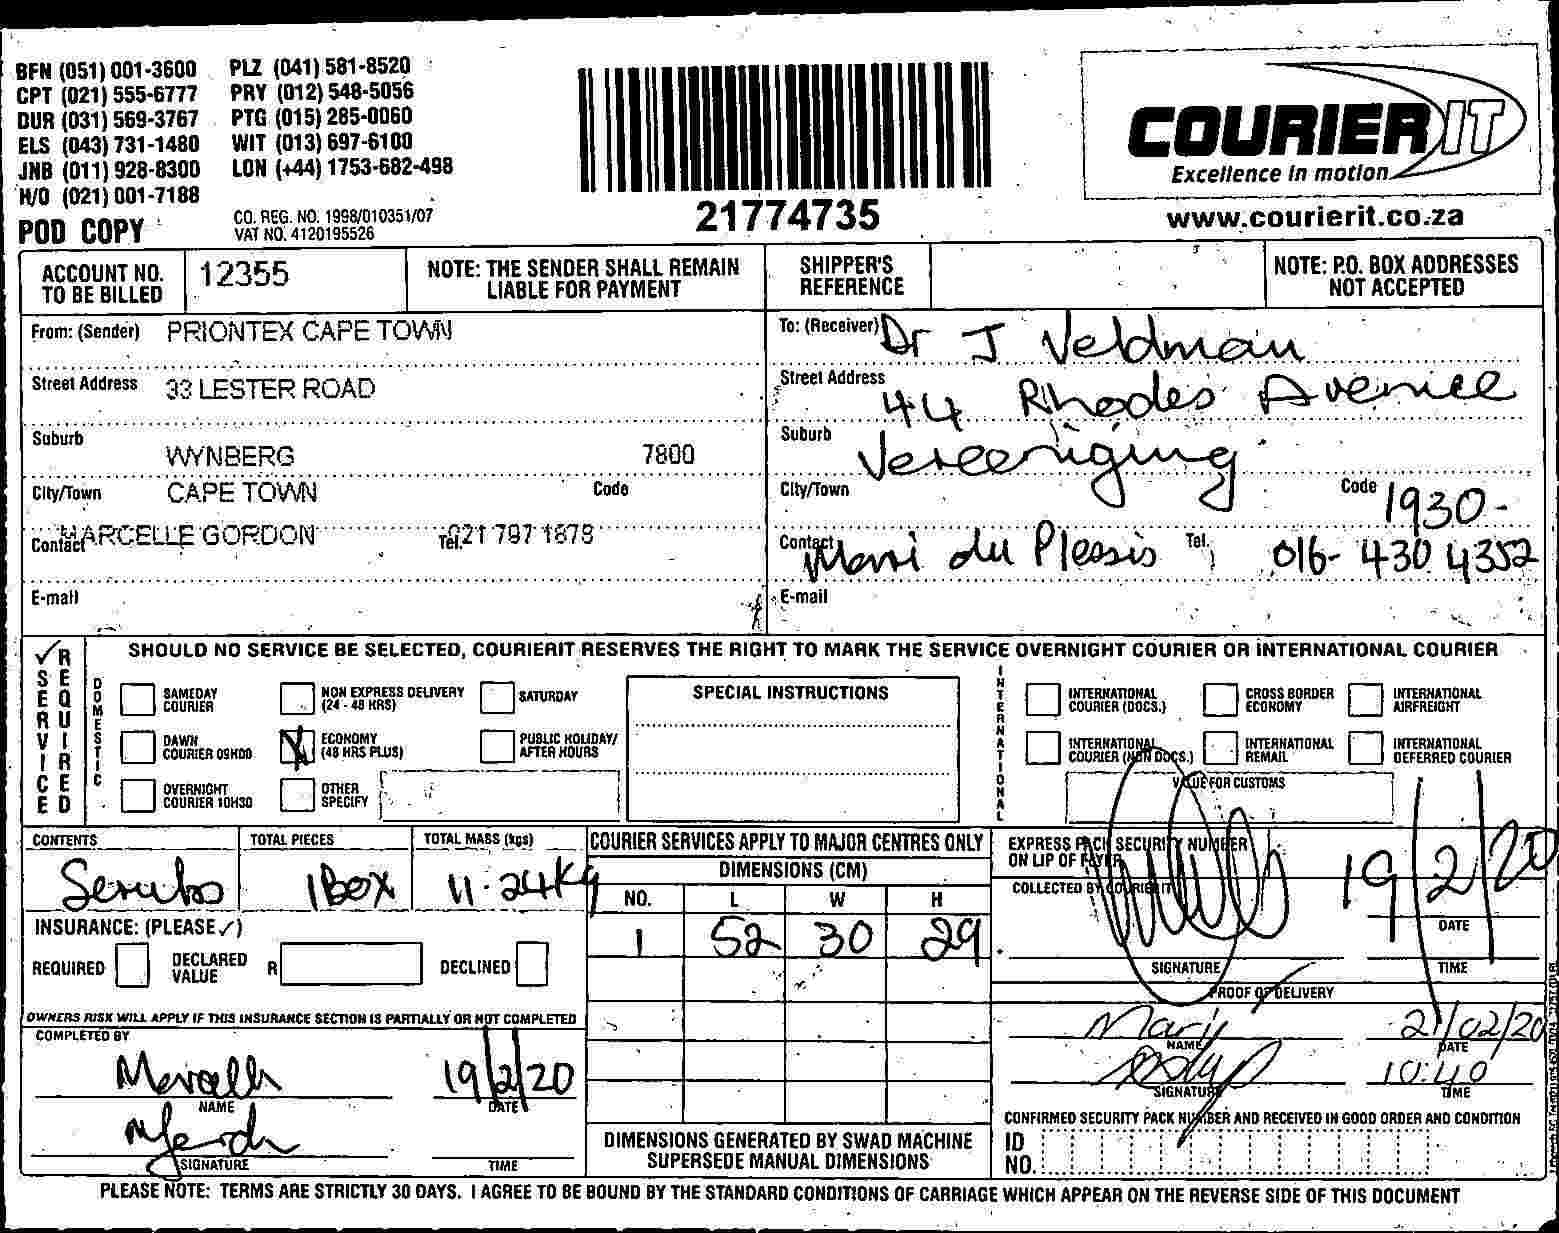 BFN (051) 001-3600 PLZ (041) 581-8520
CPT (021) 555-6777 PRY (012) 548-5056
DUR (031) 569-3767 PTG (015) 285-0060
ELS (043) 731-1480 WIT (013) 697-6100
JNB (011) 928-8300 LON (+44) 1753-682-498
H/O (021) 001-7188
POD COPY
CO. REG. NO. 1998/010351/07
VAT NO. 4120195526
21774735
COURIER IT
Excellence in motion
www.courierit.co.za
ACCOUNT NO. TO BE BILLED 12355
NOTE: THE SENDER SHALL REMAIN LIABLE FOR PAYMENT
SHIPPER'S REFERENCE
NOTE: P.O. BOX ADDRESSES NOT ACCEPTED
From: (Sender) PRIONTEX CAPE TOWN
Street Address 33 LESTER ROAD
Suburb WYNBERG 7800
City/Town CAPE TOWN Code
Contact MARCELLE GORDON Tel. 021 797 1878
E-mail
To: (Receiver) Dr J Veldman
Street Address 44 Rhodes Avenue
Suburb Vereeniging
City/Town Code 1930-
Contact Mari du Plessis Tel. 016-430 4352
E-mail
✓ SERVICE REQUIRED
SHOULD NO SERVICE BE SELECTED, COURIERIT RESERVES THE RIGHT TO MARK THE SERVICE OVERNIGHT COURIER OR INTERNATIONAL COURIER
DOMESTIC
SAMEDAY COURIER
NON EXPRESS DELIVERY (24 - 48 HRS)
SATURDAY
DAWN COURIER 09H00
ECONOMY (48 HRS PLUS)
PUBLIC HOLIDAY/ AFTER HOURS
OVERNIGHT COURIER 10H30
OTHER SPECIFY
SPECIAL INSTRUCTIONS
INTERNATIONAL
INTERNATIONAL COURIER (DOCS.)
CROSS BORDER ECONOMY
INTERNATIONAL AIRFREIGHT
INTERNATIONAL COURIER (NON DOCS.)
INTERNATIONAL REMAIL
INTERNATIONAL DEFERRED COURIER
VALUE FOR CUSTOMS
CONTENTS Scrubs
TOTAL PIECES 1 Box
TOTAL MASS (kgs) 11.24kg
INSURANCE: (PLEASE ✓)
REQUIRED
DECLARED VALUE R
DECLINED
OWNERS RISK WILL APPLY IF THIS INSURANCE SECTION IS PARTIALLY OR NOT COMPLETED
COMPLETED BY
Marcelle 19/2/20
NAME DATE
SIGNATURE TIME
COURIER SERVICES APPLY TO MAJOR CENTRES ONLY
DIMENSIONS (CM)
NO. L W H
1 52 30 29
DIMENSIONS GENERATED BY SWAD MACHINE SUPERSEDE MANUAL DIMENSIONS
EXPRESS PACK SECURITY NUMBER ON LIP OF FLYER
COLLECTED BY COURIERIT
19/2/20
DATE
SIGNATURE TIME
PROOF OF DELIVERY
21/02/20
NAME DATE
10:40
SIGNATURE TIME
CONFIRMED SECURITY PACK NUMBER AND RECEIVED IN GOOD ORDER AND CONDITION
ID NO.
PLEASE NOTE: TERMS ARE STRICTLY 30 DAYS. I AGREE TO BE BOUND BY THE STANDARD CONDITIONS OF CARRIAGE WHICH APPEAR ON THE REVERSE SIDE OF THIS DOCUMENT